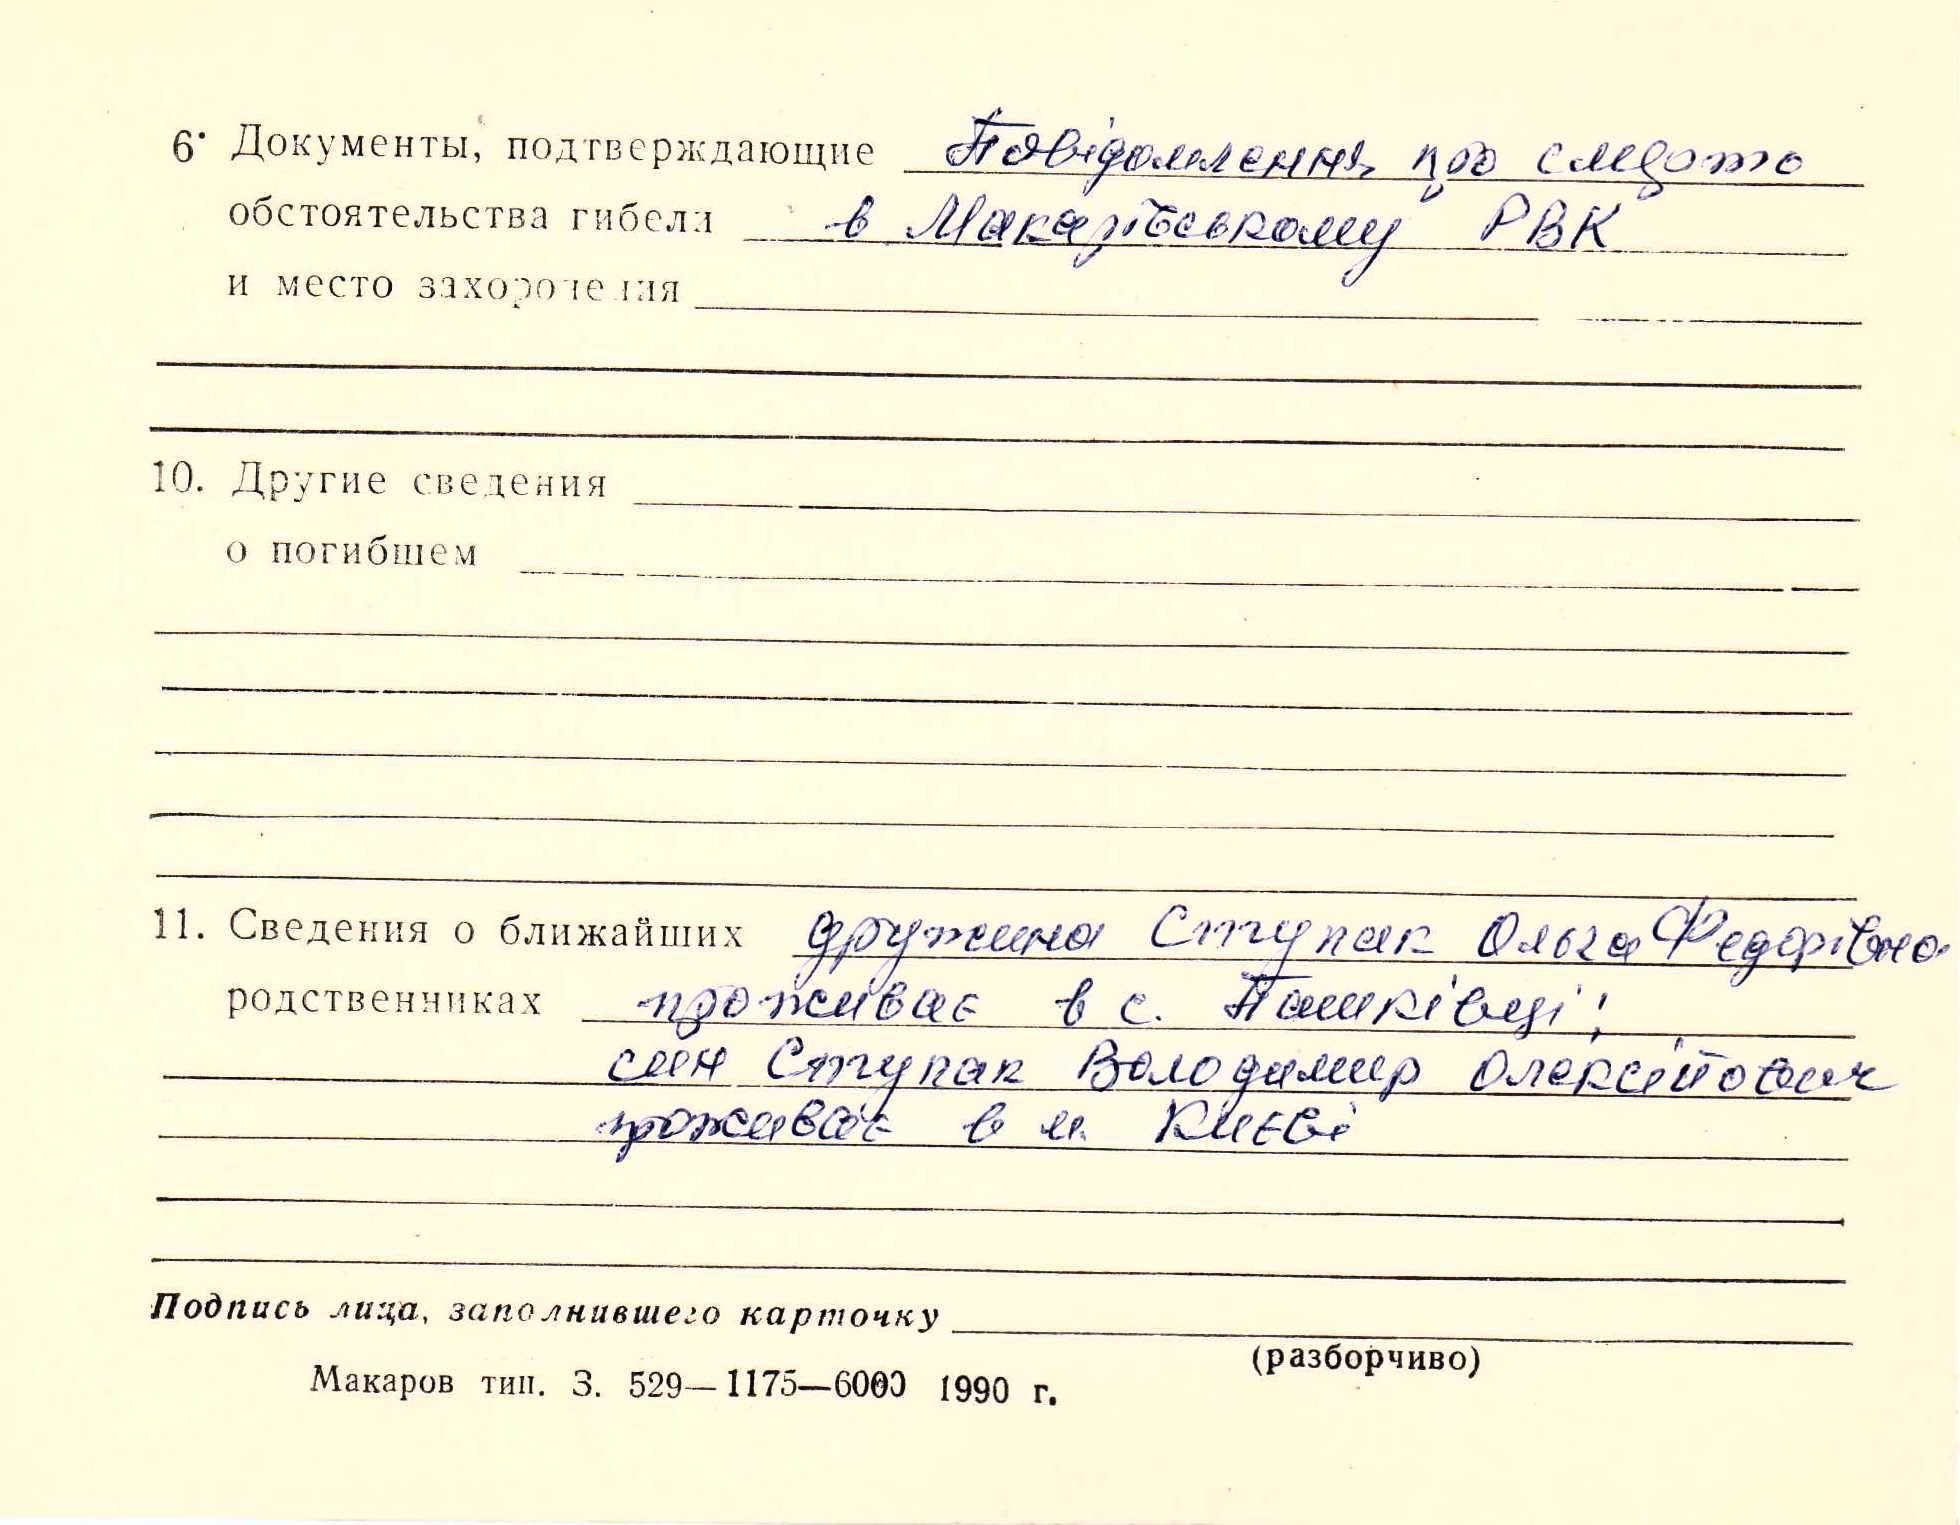 6. Документы, подтверждающие Повідомлення про смерть
обстоятельства гибели в Макарівському РВК
и место захоронения
10. Другие сведения
о погибшем
11. Сведения о ближайших дружина Ступак Ольга Федорівна
родственниках проживає в с. Пашківці;
син Ступак Володимир Олексійович
проживає в м. Києві
Подпись лица, заполнившего карточку
(разборчиво)
Макаров тип. З. 529—1175—6000 1990 г.